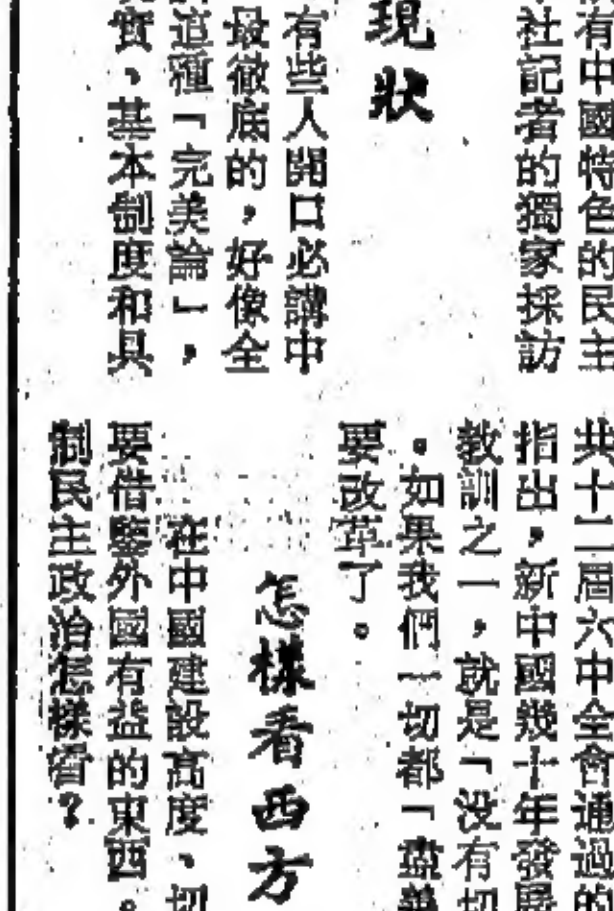 有中國特色的民主
社記者的獨家採訪
現狀
有些人開口必講中
最徹底的，好像全
這種「完美論」，
實、基本制度和具
共十二屆六中全會通過的
指出，新中國幾十年發展
教訓之一，就是「没有切
。如果我們一切都「盡善
要改革了。
怎樣看西方
在中國建設高度、切
要借鑒外國有益的東西。
制民主政治怎樣看？